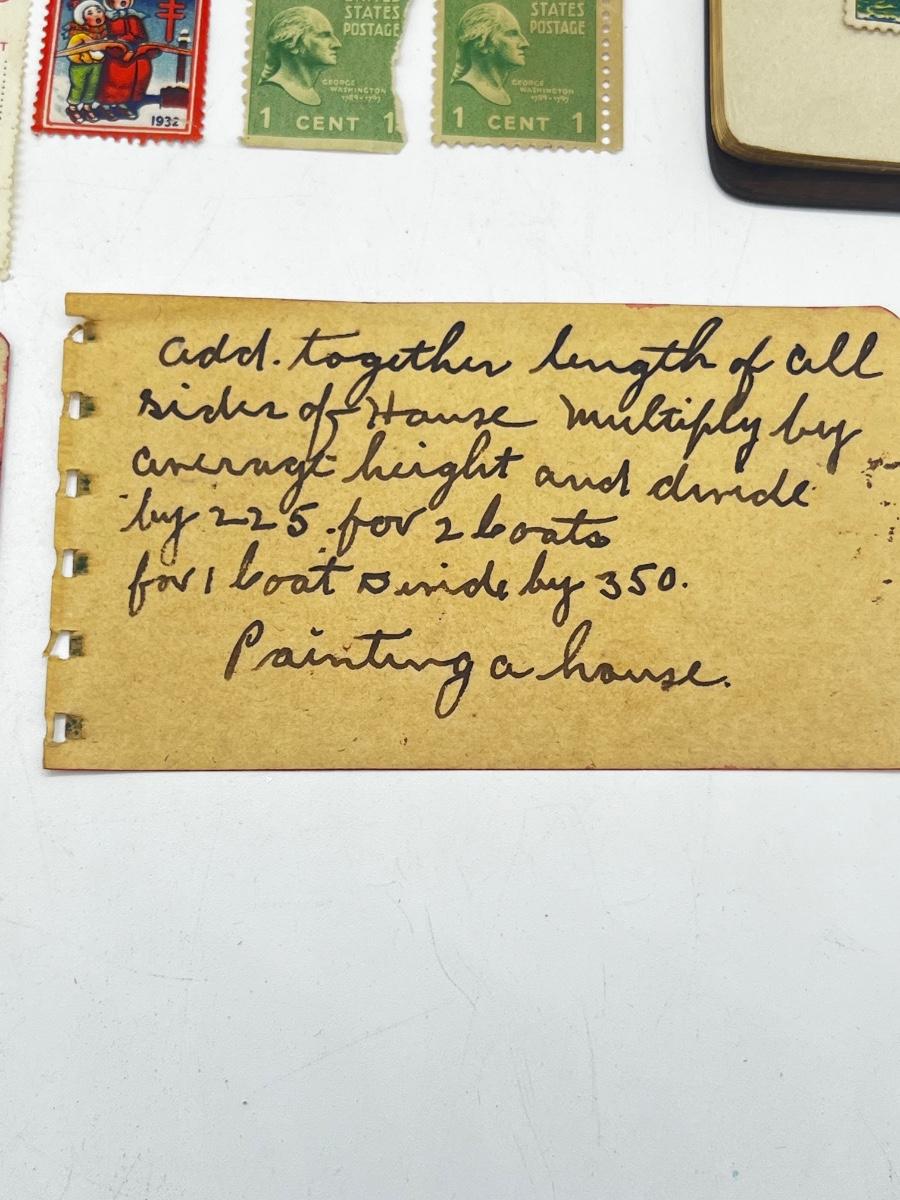 1932
UNITED
STATES
POSTAGE
GEORGE
WASHINGTON
1789-1797
1 CENT 1
STATES
POSTAGE
GEORGE
WASHINGTON
1789-1797
1 CENT 1
add. together length of all
sides of House Multiply by
average height and divide
by 225. for 2 coats
for 1 coat Divide by 350.
Painting a house.